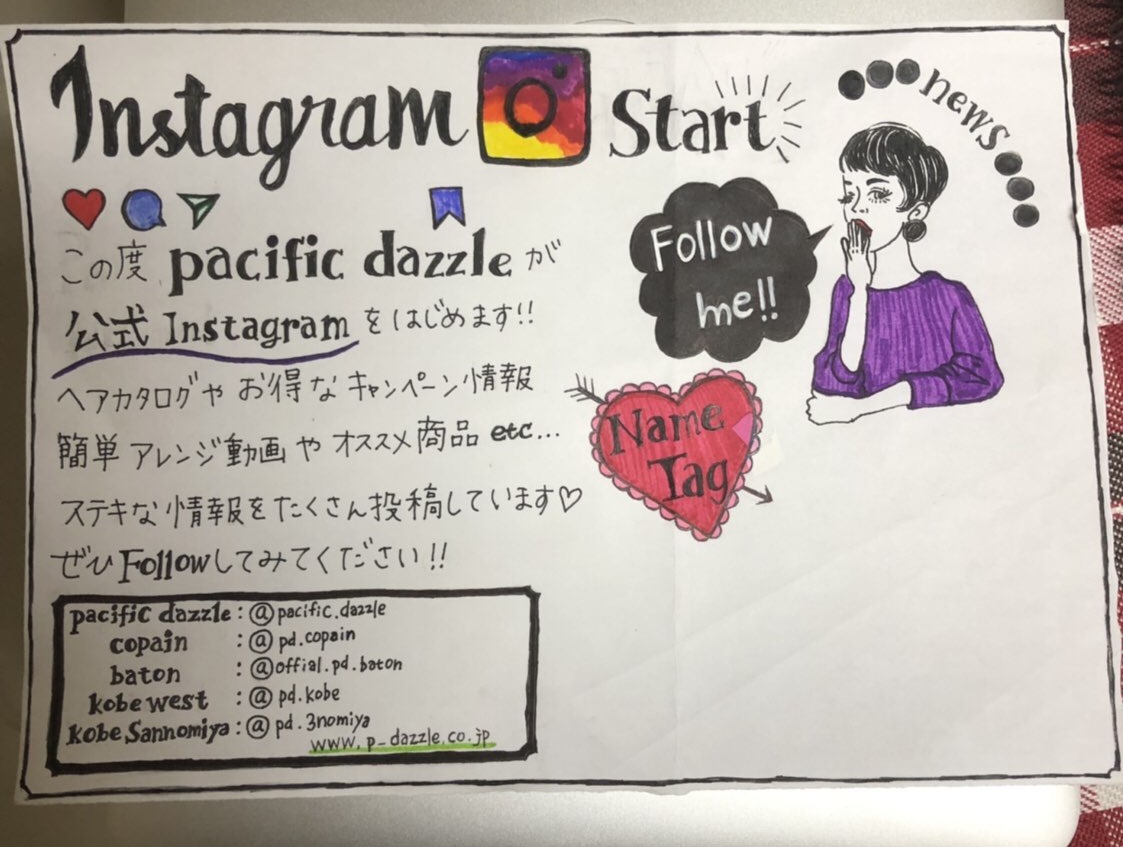 Instagram Start
news
この度 pacific dazzle が
公式 Instagram をはじめます!!
ヘアカタログや お得な キャンペーン情報
簡単 アレンジ動画や オススメ商品 etc...
ステキな 情報をたくさん投稿しています♡
ぜひ Followしてみてください!!
Follow
me!!
Name
Tag
pacific dazzle : @pacific.dazzle
copain : @pd.copain
baton : @offial.pd.baton
kobe west : @pd.kobe
kobe Sannomiya : @pd.3nomiya
www.p-dazzle.co.jp